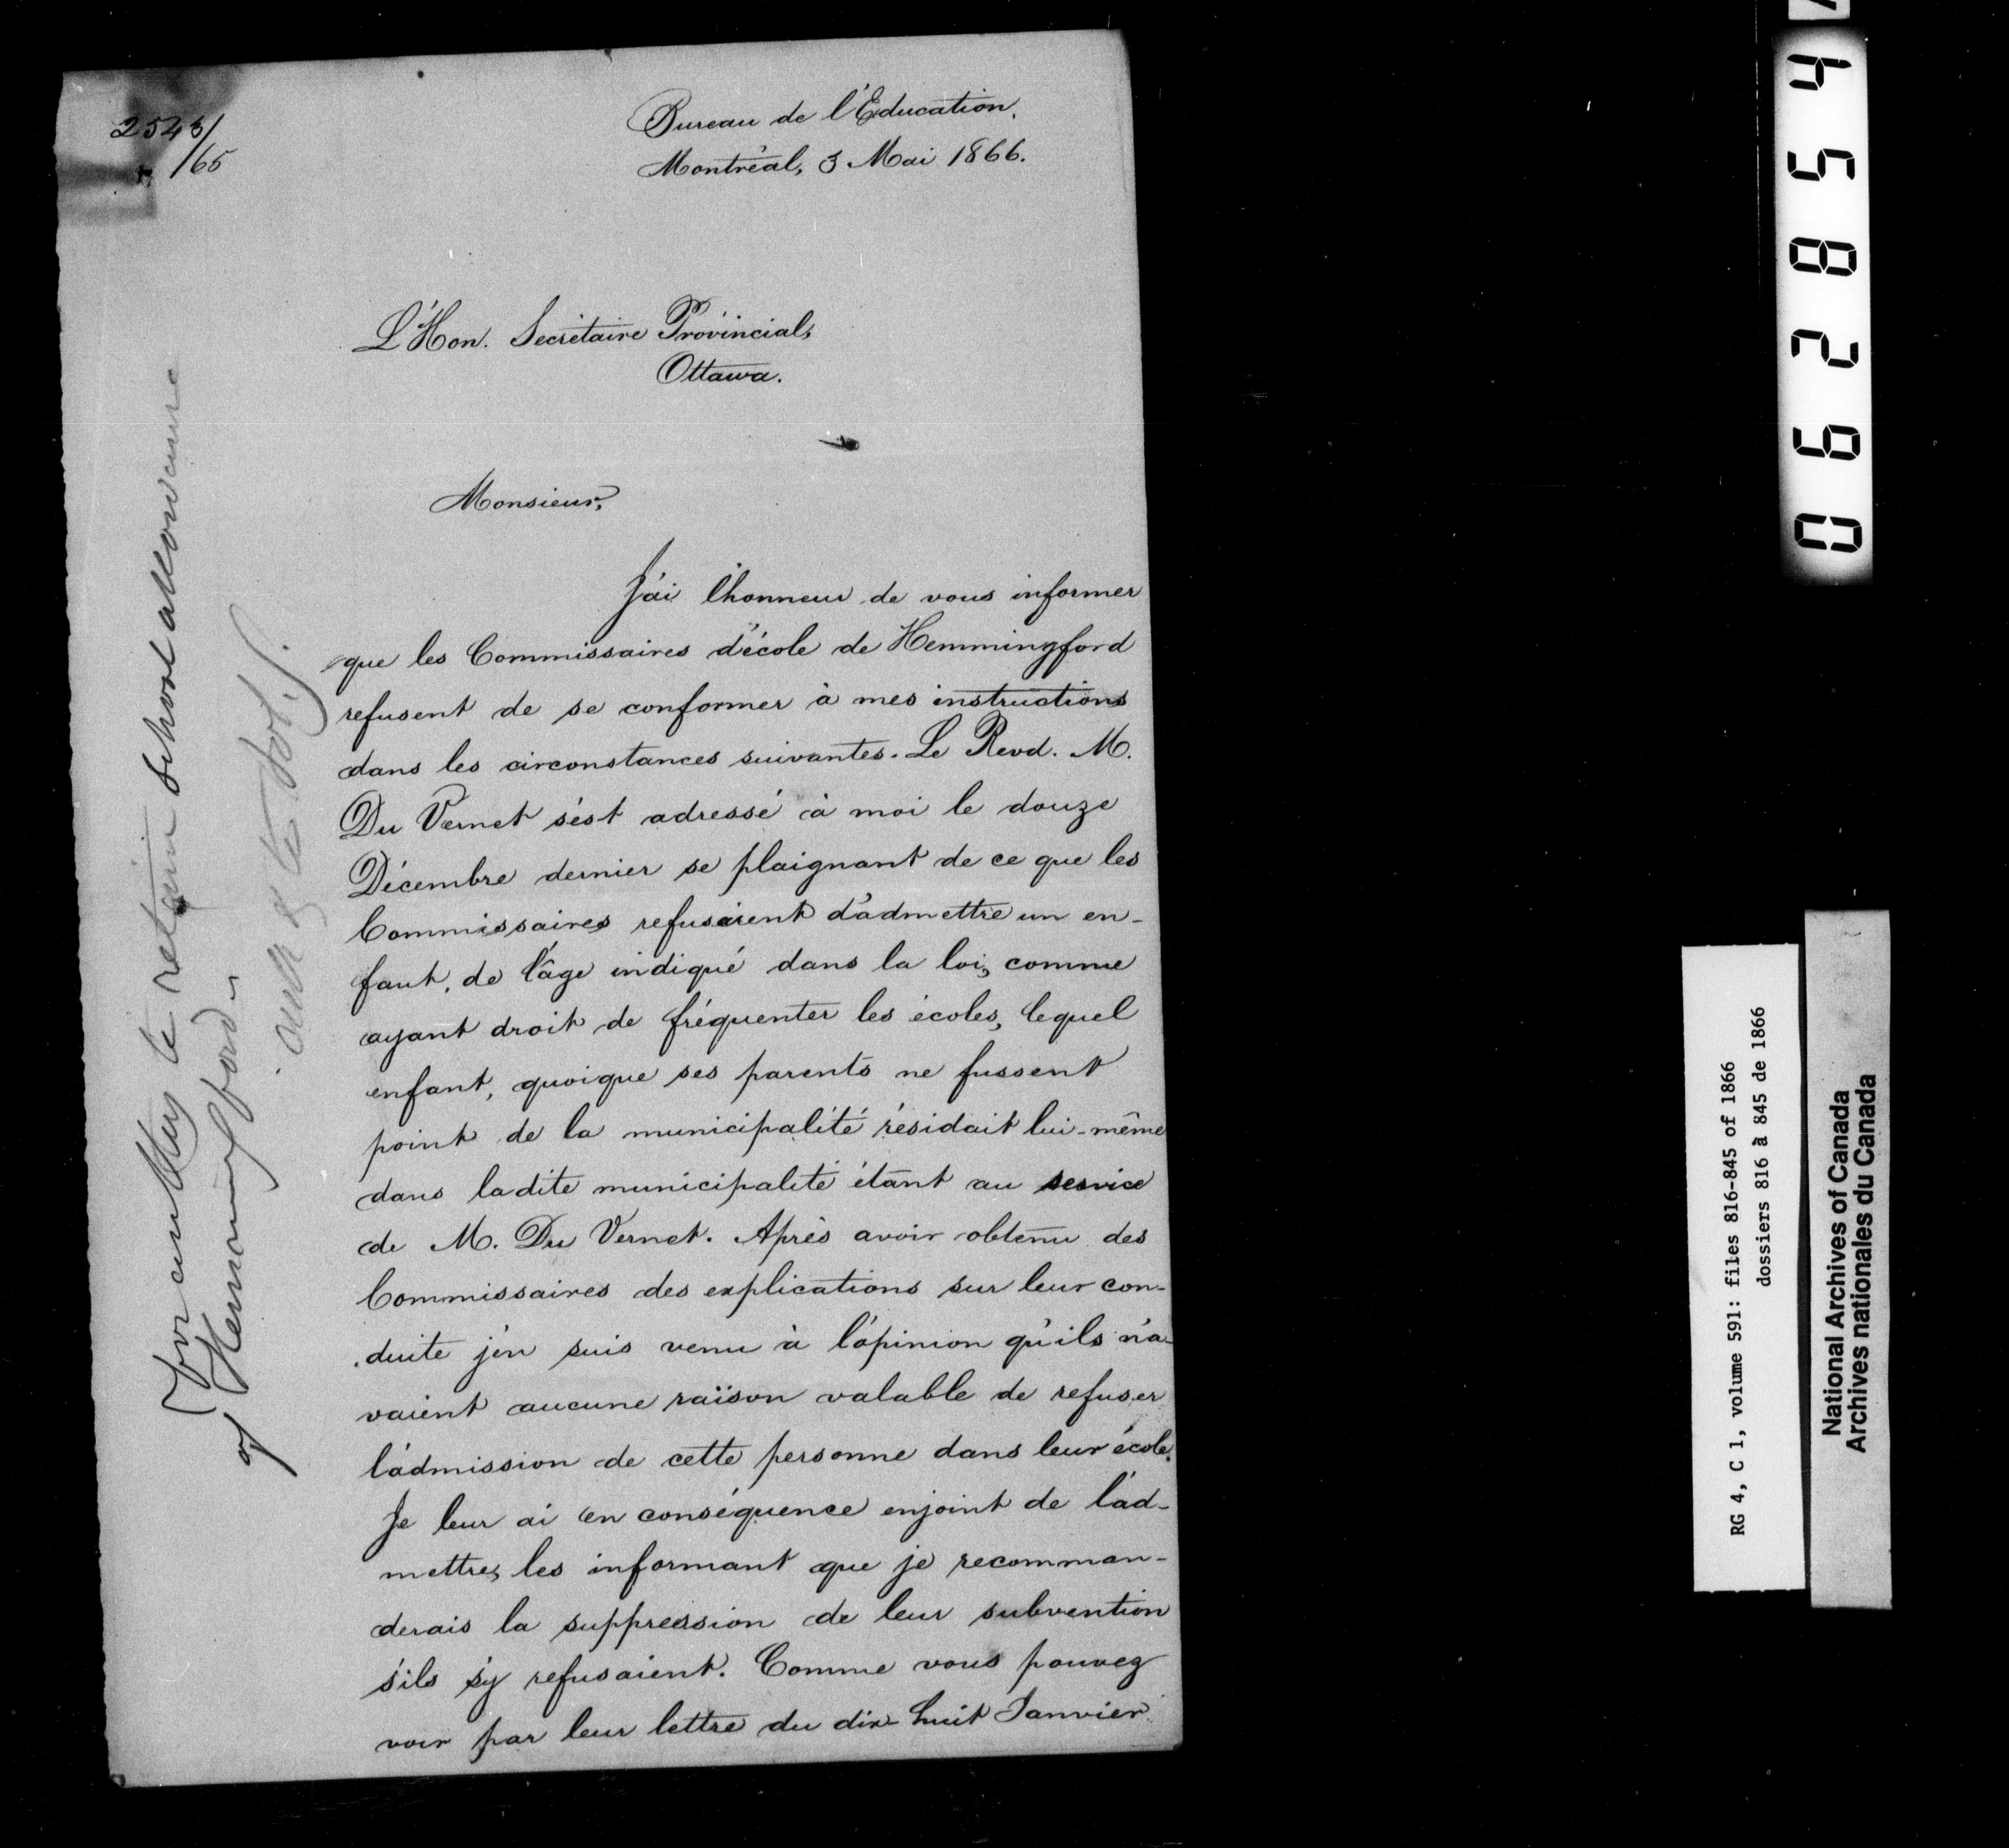 2543/
/65
Bureau de l'Education,
Montréal, 3 Mai 1866.
L'Hon. Secrétaire Provincial,
Ottawa.
Monsieur,
J'ai l'honneur de vous informer
que les Commissaires d'école de Hemmingford
refusent de se conformer à mes instructions
dans les circonstances suivantes. Le Revd. M.
Du Vernet s'est adressé à moi le douze
Décembre dernier se plaignant de ce que les
Commissaires refusaient d'admettre un en-
fant, de l'âge indiqué dans la loi, comme
ayant droit de fréquenter les écoles, lequel
enfant, quoique ses parents ne fussent
point de la municipalité résidait lui-même
dans ladite municipalité étant au service
de M. Du Vernet. Après avoir obtenu des
Commissaires des explications sur leur con-
duite j'en suis venu à l'opinion qu'ils n'a-
vaient aucune raison valable de refuser
l'admission de cette personne dans leur école.
Je leur ai en conséquence enjoint de l'ad-
mettre, les informant que je recomman-
derais la suppression de leur subvention
s'ils s'y refusaient. Comme vous pouvez
voir par leur lettre du dix-huit Janvier
For authy to retain school allowance
of Hemmingford
062854
RG 4, C 1, volume 591: files 816-845 of 1866
dossiers 816 à 845 de 1866
National Archives of Canada
Archives nationales du Canada